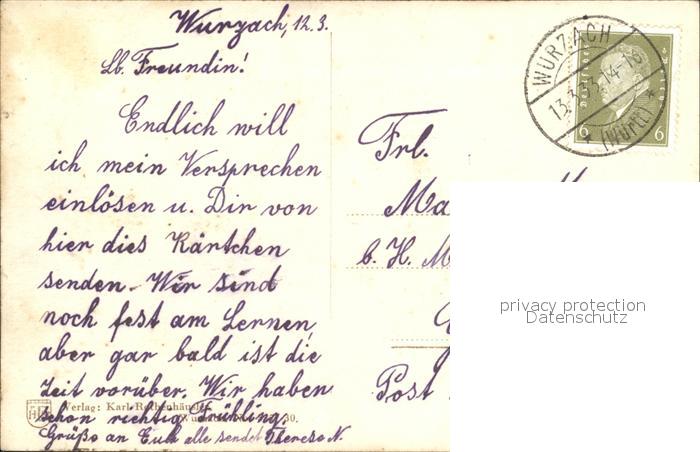 Wurzach, 12.3.
Lb. Freundin!
Endlich will
ich mein Versprechen
einlösen u. Dir von
hier dies Kärtchen
senden. Wir sind
noch fest am Lernen,
aber gar bald ist die
Zeit vorüber. Wir haben
schon richtig Frühling.
Grüße an Euch alle sendet Therese N.
Verlag: Karl Rothenhäusler
WURZACH
13.3.33.14-18
* (WÜRTT) *
Deutsches Reich
6 6
Frl.
Ma
b. H. M
Post
privacy protection
Datenschutz